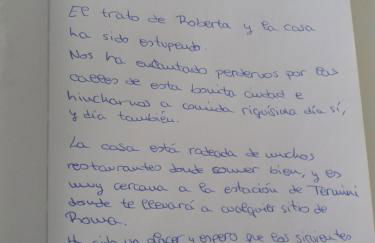 El trato de Roberta y la casa
ha sido estupendo.
Nos ha encantado perdernos por las
calles de esta bonita ciudad e
hincharnos a comida riquísima día sí,
y día también.
La casa está rodeada de muchos
restaurantes donde comer bien, y es
muy cercana a la estación de Términi
donde te llevará a cualquier sitio de
Roma.
Ha sido un placer y espero que los siguientes